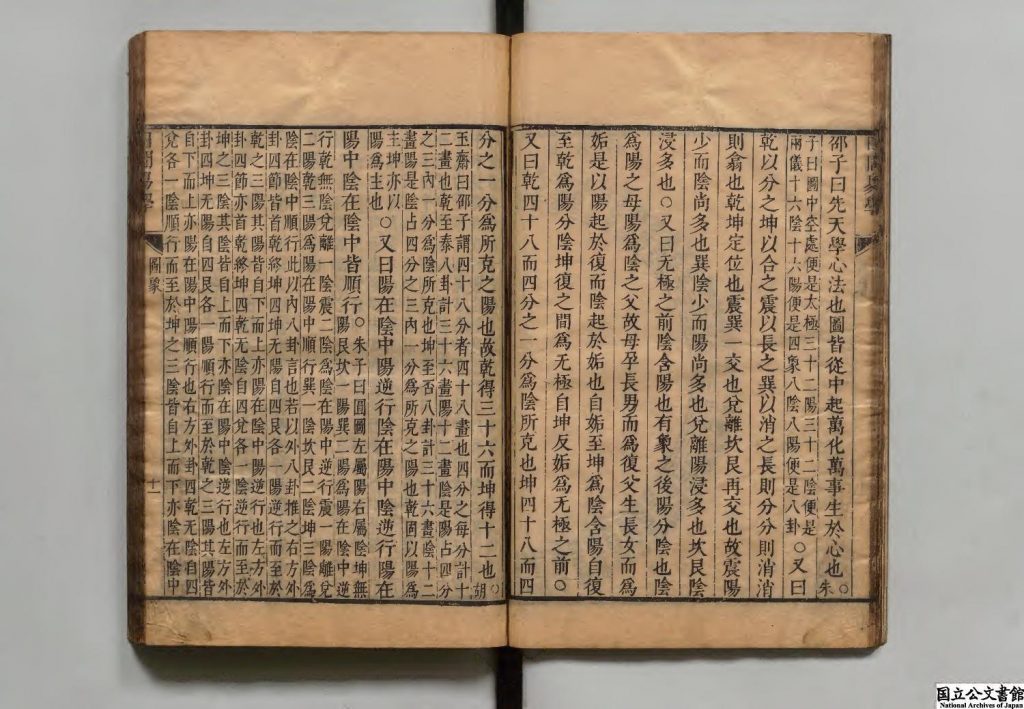 邵子曰先天學心法也圖皆從中起萬化萬事生於心也○朱
子曰圖中空處便是太極三十二陽三十二陰便是
兩儀十六陰十六陽便是四象八陰八陽便是八卦○又曰
乾以分之坤以合之震以長之巽以消之長則分分則消消
則翕也乾坤定位也震巽一交也兌離坎艮再交也故震陽
少而陰尚多也巽陰少而陽尚多也兌離陽浸多也坎艮陰
浸多也○又曰无極之前陰含陽也有象之後陽分陰也陰
為陽之母陽為陰之父故母孕長男而為復父生長女而為
姤是以陽起於復而陰起於姤也自姤至坤為陰含陽自復
至乾為陽分陰坤復之間為无極自坤反姤為无極之前○
又曰乾四十八而四分之一分為陰所克也坤四十八而四
分之一分為所克之陽也故乾得三十六而坤得十二也○胡
玉齋曰邵子謂四十八分者四十八畫也四分之每分計十
二畫也乾至泰八卦計三十六畫陽十二畫陰是陽占四分
之三內一分為陰所克也坤至否八卦計三十六畫陰十二
畫陽是陰占四分之三內一分為所克之陽也乾固以陽為
主坤亦以
陽為主也○又曰陽在陰中陽逆行陰在陽中陰逆行陽在
陽中陰在陰中皆順行○朱子曰圓圖左屬陽右屬陰坤無
陽艮坎一陽巽二陽為陽在陰中逆
行乾無陰兌離一陰震二陰為陰在陽中逆行震一陽離兌
二陽乾三陽為陽在陽中順行巽一陰坎艮二陰坤三陰為
陰在陰中順行此以內八卦言也若以外八卦推之右方外
卦四節皆首乾終坤四坤无陽自四艮各一陽逆行而至於
乾之三陽其陽皆自下而上亦陽在陰中陽逆行也左方外
卦四節亦首乾終坤四乾无陰自四兌各一陰逆行而至於
坤之三陰其陰皆自上而下亦陰在陽中陰逆行也左方外
卦四坤无陽自四艮各一陽順行而至於乾之三陽其陽皆
自下而上亦陽在陽中陽順行也右方外卦四乾无陰自四
兌各一陰順行而至於坤之三陰皆自上而下亦陰在陰中
圖象
十一
国立公文書館
National Archives of Japan